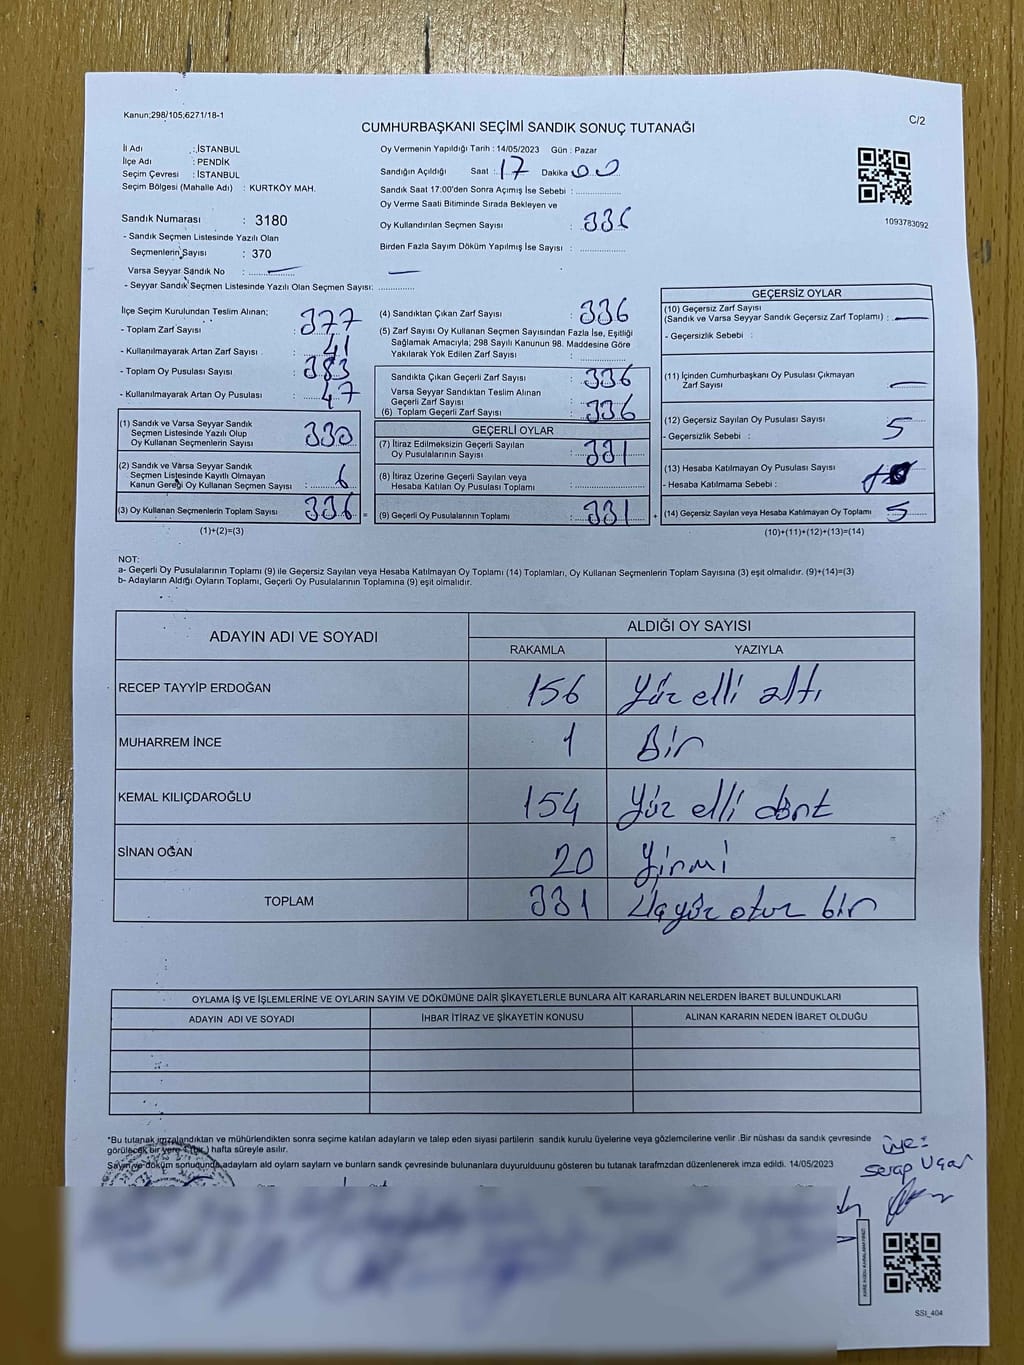 Kanun;298/105;6271/18-1
CUMHURBAŞKANI SEÇİMİ SANDIK SONUÇ TUTANAĞI
C/2
İl Adı : İSTANBUL
İlçe Adı : PENDİK
Seçim Çevresi : İSTANBUL
Seçim Bölgesi (Mahalle Adı) : KURTKÖY MAH.
Sandık Numarası : 3180
- Sandık Seçmen Listesinde Yazılı Olan
Seçmenlerin Sayısı : 370
Varsa Seyyar Sandık No : —
- Seyyar Sandık Seçmen Listesinde Yazılı Olan Seçmen Sayısı: ............ —
Oy Vermenin Yapıldığı Tarih : 14/05/2023 Gün : Pazar
Sandığın Açıldığı Saat : 17 Dakika 00
Sandık Saat 17:00'den Sonra Açımış İse Sebebi : ............
Oy Verme Saati Bitiminde Sırada Bekleyen ve
Oy Kullandırılan Seçmen Sayısı : 336
Birden Fazla Sayım Döküm Yapılmış İse Sayısı : ............
1093783092
İlçe Seçim Kurulundan Teslim Alınan;
- Toplam Zarf Sayısı : 377
- Kullanılmayarak Artan Zarf Sayısı : 41
- Toplam Oy Pusulası Sayısı : 383
- Kullanılmayarak Artan Oy Pusulası : 47
(1) Sandık ve Varsa Seyyar Sandık
Seçmen Listesinde Yazılı Olup
Oy Kullanan Seçmenlerin Sayısı 330
(2) Sandık ve Varsa Seyyar Sandık
Seçmen Listesinde Kayıtlı Olmayan
Kanun Gereği Oy Kullanan Seçmen Sayısı : 6
(3) Oy Kullanan Seçmenlerin Toplam Sayısı : 336 =
(1)+(2)=(3)
(4) Sandıktan Çıkan Zarf Sayısı : 336
(5) Zarf Sayısı Oy Kullanan Seçmen Sayısından Fazla İse, Eşitliği
Sağlamak Amacıyla; 298 Sayılı Kanunun 98. Maddesine Göre
Yakılarak Yok Edilen Zarf Sayısı : ............
Sandıkta Çıkan Geçerli Zarf Sayısı : 336
Varsa Seyyar Sandıktan Teslim Alınan
Geçerli Zarf Sayısı : ............
(6) Toplam Geçerli Zarf Sayısı : 336
GEÇERLİ OYLAR
(7) İtiraz Edilmeksizin Geçerli Sayılan
Oy Pusulalarının Sayısı : 331
(8) İtiraz Üzerine Geçerli Sayılan veya
Hesaba Katılan Oy Pusulası Toplamı : ............
(9) Geçerli Oy Pusulalarının Toplamı : 331 +
GEÇERSİZ OYLAR
(10) Geçersiz Zarf Sayısı
(Sandık ve Varsa Seyyar Sandık Geçersiz Zarf Toplamı) : —
- Geçersizlik Sebebi :
(11) İçinden Cumhurbaşkanı Oy Pusulası Çıkmayan
Zarf Sayısı —
(12) Geçersiz Sayılan Oy Pusulası Sayısı : 5
- Geçersizlik Sebebi :
(13) Hesaba Katılmayan Oy Pusulası Sayısı :
- Hesaba Katılmama Sebebi :
(14) Geçersiz Sayılan veya Hesaba Katılmayan Oy Toplamı 5
(10)+(11)+(12)+(13)=(14)
NOT:
a- Geçerli Oy Pusulalarının Toplamı (9) ile Geçersiz Sayılan veya Hesaba Katılmayan Oy Toplamı (14) Toplamları, Oy Kullanan Seçmenlerin Toplam Sayısına (3) eşit olmalıdır. (9)+(14)=(3)
b- Adayların Aldığı Oyların Toplamı, Geçerli Oy Pusulalarının Toplamına (9) eşit olmalıdır.
ADAYIN ADI VE SOYADI
ALDIĞI OY SAYISI
RAKAMLA YAZIYLA
RECEP TAYYİP ERDOĞAN 156 Yüz elli altı
MUHARREM İNCE 1 Bir
KEMAL KILIÇDAROĞLU 154 Yüz elli dört
SİNAN OĞAN 20 Yirmi
TOPLAM 331 Üçyüz otuz bir
OYLAMA İŞ VE İŞLEMLERİNE VE OYLARIN SAYIM VE DÖKÜMÜNE DAİR ŞİKAYETLERLE BUNLARA AİT KARARLARIN NELERDEN İBARET BULUNDUKLARI
ADAYIN ADI VE SOYADI İHBAR İTİRAZ VE ŞİKAYETİN KONUSU ALINAN KARARIN NEDEN İBARET OLDUĞU
*Bu tutanak imzalandıktan ve mühürlendikten sonra seçime katılan adayların ve talep eden siyasi partilerin sandık kurulu üyelerine veya gözlemcilerine verilir .Bir nüshası da sandık çevresinde
görülecek bir yere 1 (bir) hafta süreyle asılır.
Sayım ve döküm sonuçunda adayların ald oyların sayların ve bunların sandk çevresinde bulunanlara duyurulduunu gösteren bu tutanak tarafmzdan düzenlenerek imza edildi. 14/05/2023
üye:
Serap Uçar
SSI_404